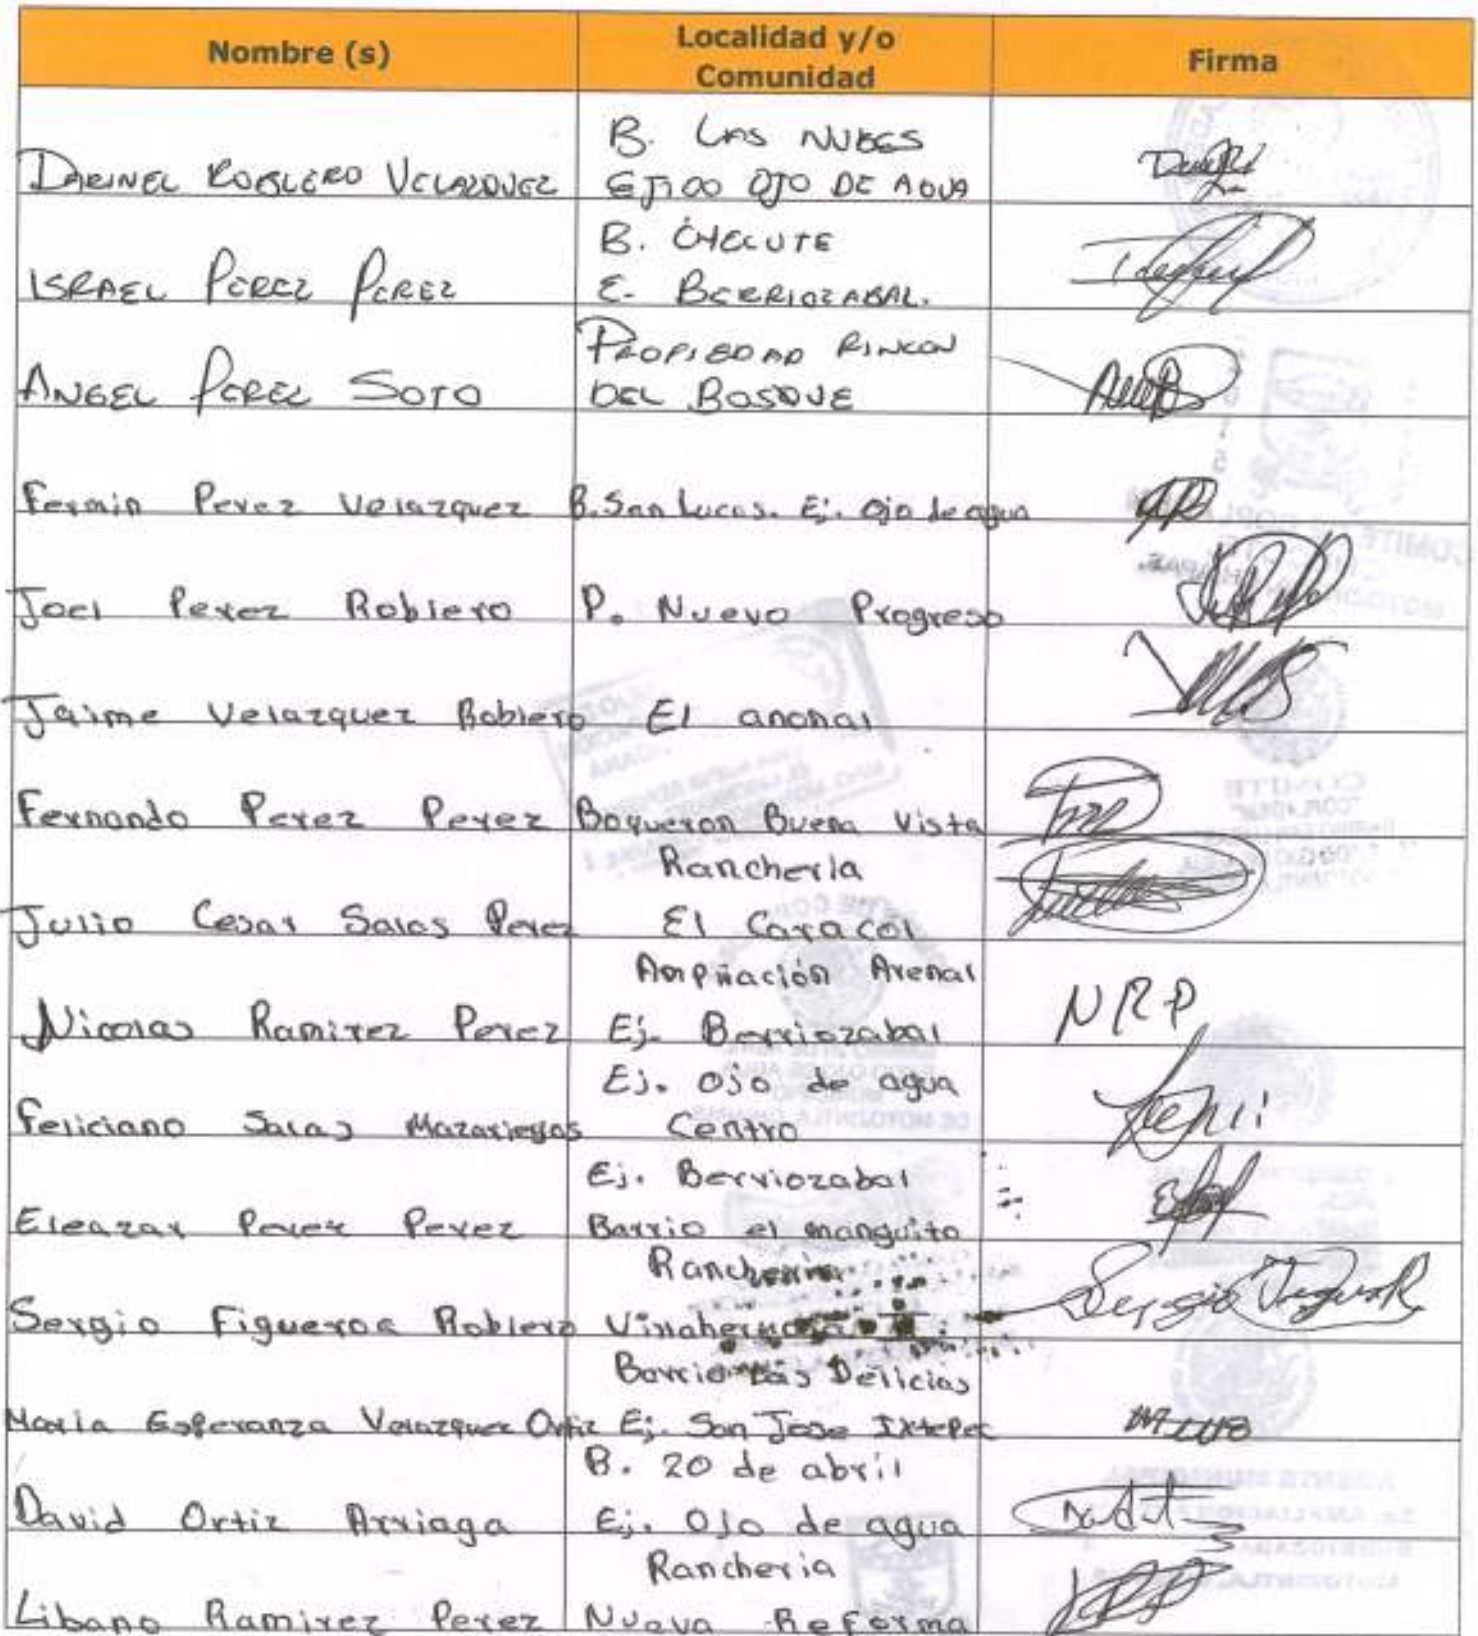 Nombre (s)
Localidad y/o
Comunidad
Firma
DARINEL ROBLERO VELAZQUEZ
B. LAS NUBES
EJIDO OJO DE AGUA
ISRAEL PEREZ PEREZ
B. CHECUTE
E. BERRIOZABAL.
ANGEL PEREZ SOTO
PROPIEDAD RINCON
DEL BOSQUE
Fermin Perez Velazquez
B. San Lucas. Ej. Ojo de agua
Joel Perez Roblero
P. Nuevo Progreso
Jaime Velazquez Roblero
El anonal
Fernando Perez Perez
Boqueron Buena Vista
Julio Cesar Salas Perez
Rancheria
El Caracol
Nicolas Ramirez Perez
Ampliación Arenal
Ej. Berriozabal
NRP
Feliciano Salas Mazariegos
Ej. Ojo de agua
Centro
Eleazar Perez Perez
Ej. Berriozabal
Barrio el manguito
Sergio Figueroa Roblero
Rancheria
Vinahermosa
Sergio
Maria Esperanza Velazquez Ortiz
Barrio Las Delicias
Ej. San Jose Ixtepec
David Ortiz Arriaga
B. 20 de abril
Ej. Ojo de agua
Libano Ramirez Perez
Rancheria
Nueva Reforma